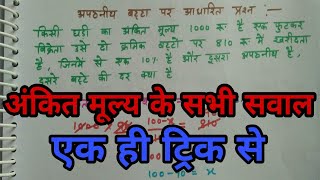 अपठनीय बट्टा पर आधारित प्रश्न:-
किसी घड़ी का अंकित मूल्य 1000 रू है एक फुटकर
विक्रेता उसे दो क्रमिक बट्टों पर 810 रू में खरीदता
है, जिनमें से एक 10% है और दूसरा अपठनीय है,
दूसरे बट्टे की दर क्या है
अंकित मूल्य के सभी सवाल
एक ही ट्रिक से
100-90 = x